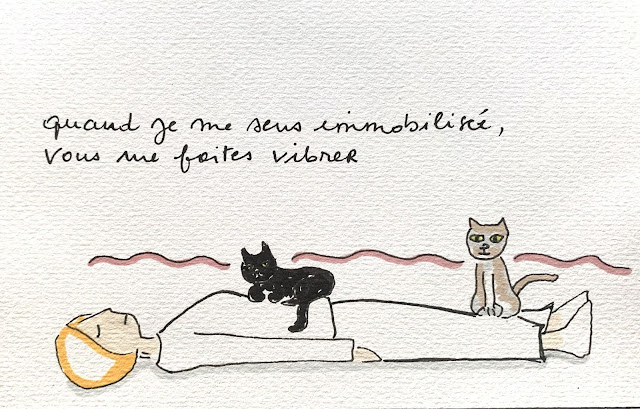 quand je me sens immobilisée,
vous me faites vibrer